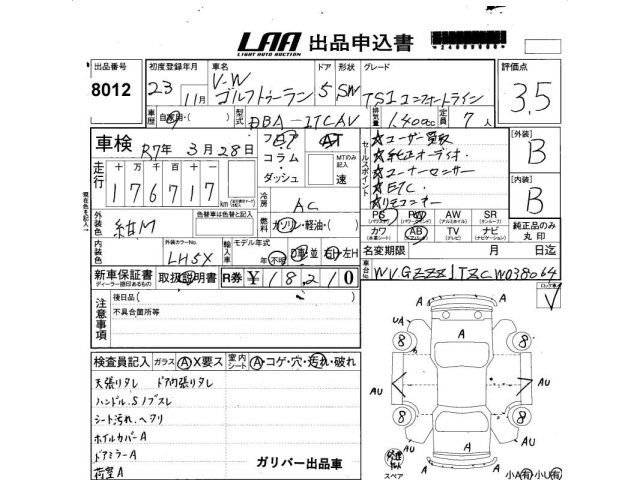 LAA 出品申込書
LIGHT AUTO AUCTION
出品番号 初度登録年月 車名 ドア 形状 グレード 評価点
8012 23 11月 V-W ゴルフトゥーラン 5 SW TSIコンフォートライン 3.5
車歴 自家用・( ) 型式 DBA-1TCAV 排気量 1,400cc 定員 7人
車検 R7年 3月28日 フロア AT
コラム・ダッシュ MTのみ記入 速
走行 十 万 千 百 十 一
176717 km
セールスポイント
★ユーザー買取
★純正オーディオ.
★コーナーセンサー
★ETC.
★リモコンキー
[外装] B
[内装] B
冷房 AC
外装色 紺M 色替車は色替と記入 燃料 ガソリン・軽油・( )
PS PW AW SR
(パワステ) (パワーウィンド) (アルミホイル) (サンルーフ)
カワ AB TV ナビ
(本革シート) (エアバッグ) (テレビ) (ナビゲーション)
純正品のみ丸印
内装色 外装カラーNo. LH5X 輸入車 モデル年式 年 不明 D車 並 右H・左H
名変期限 月 日迄
新車保証書 取扱説明書 R券 ¥18,210
ディーラー捺印あるもの
車台No. WVGZZZ1TZCW038064
注意事項 後日品( )
不具合箇所等
検査員記入 ガラス A X要ス 室内シート A・コゲ・穴・汚れ・破れ
天張りタレ ドア内張タレ
ハンドル.Sノブスレ
シート汚れ.ヘタリ
ホイルカバーA
ドアミラーA
荷室A
ガリバー出品車
A A
UA A
8 8
AU AU
A
8 8
AU AU
A
A
スペア 小A有・小U有